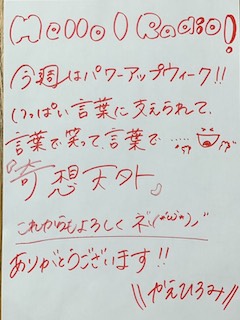 Hello! Radio!
今週はパワーアップウィーク!!
いっぱい言葉に支えられて、
言葉で笑って、言葉で
奇想天外
これからもよろしく ネ!(^ω^)ノ
ありがとうございます!!
\\やえひろみ//